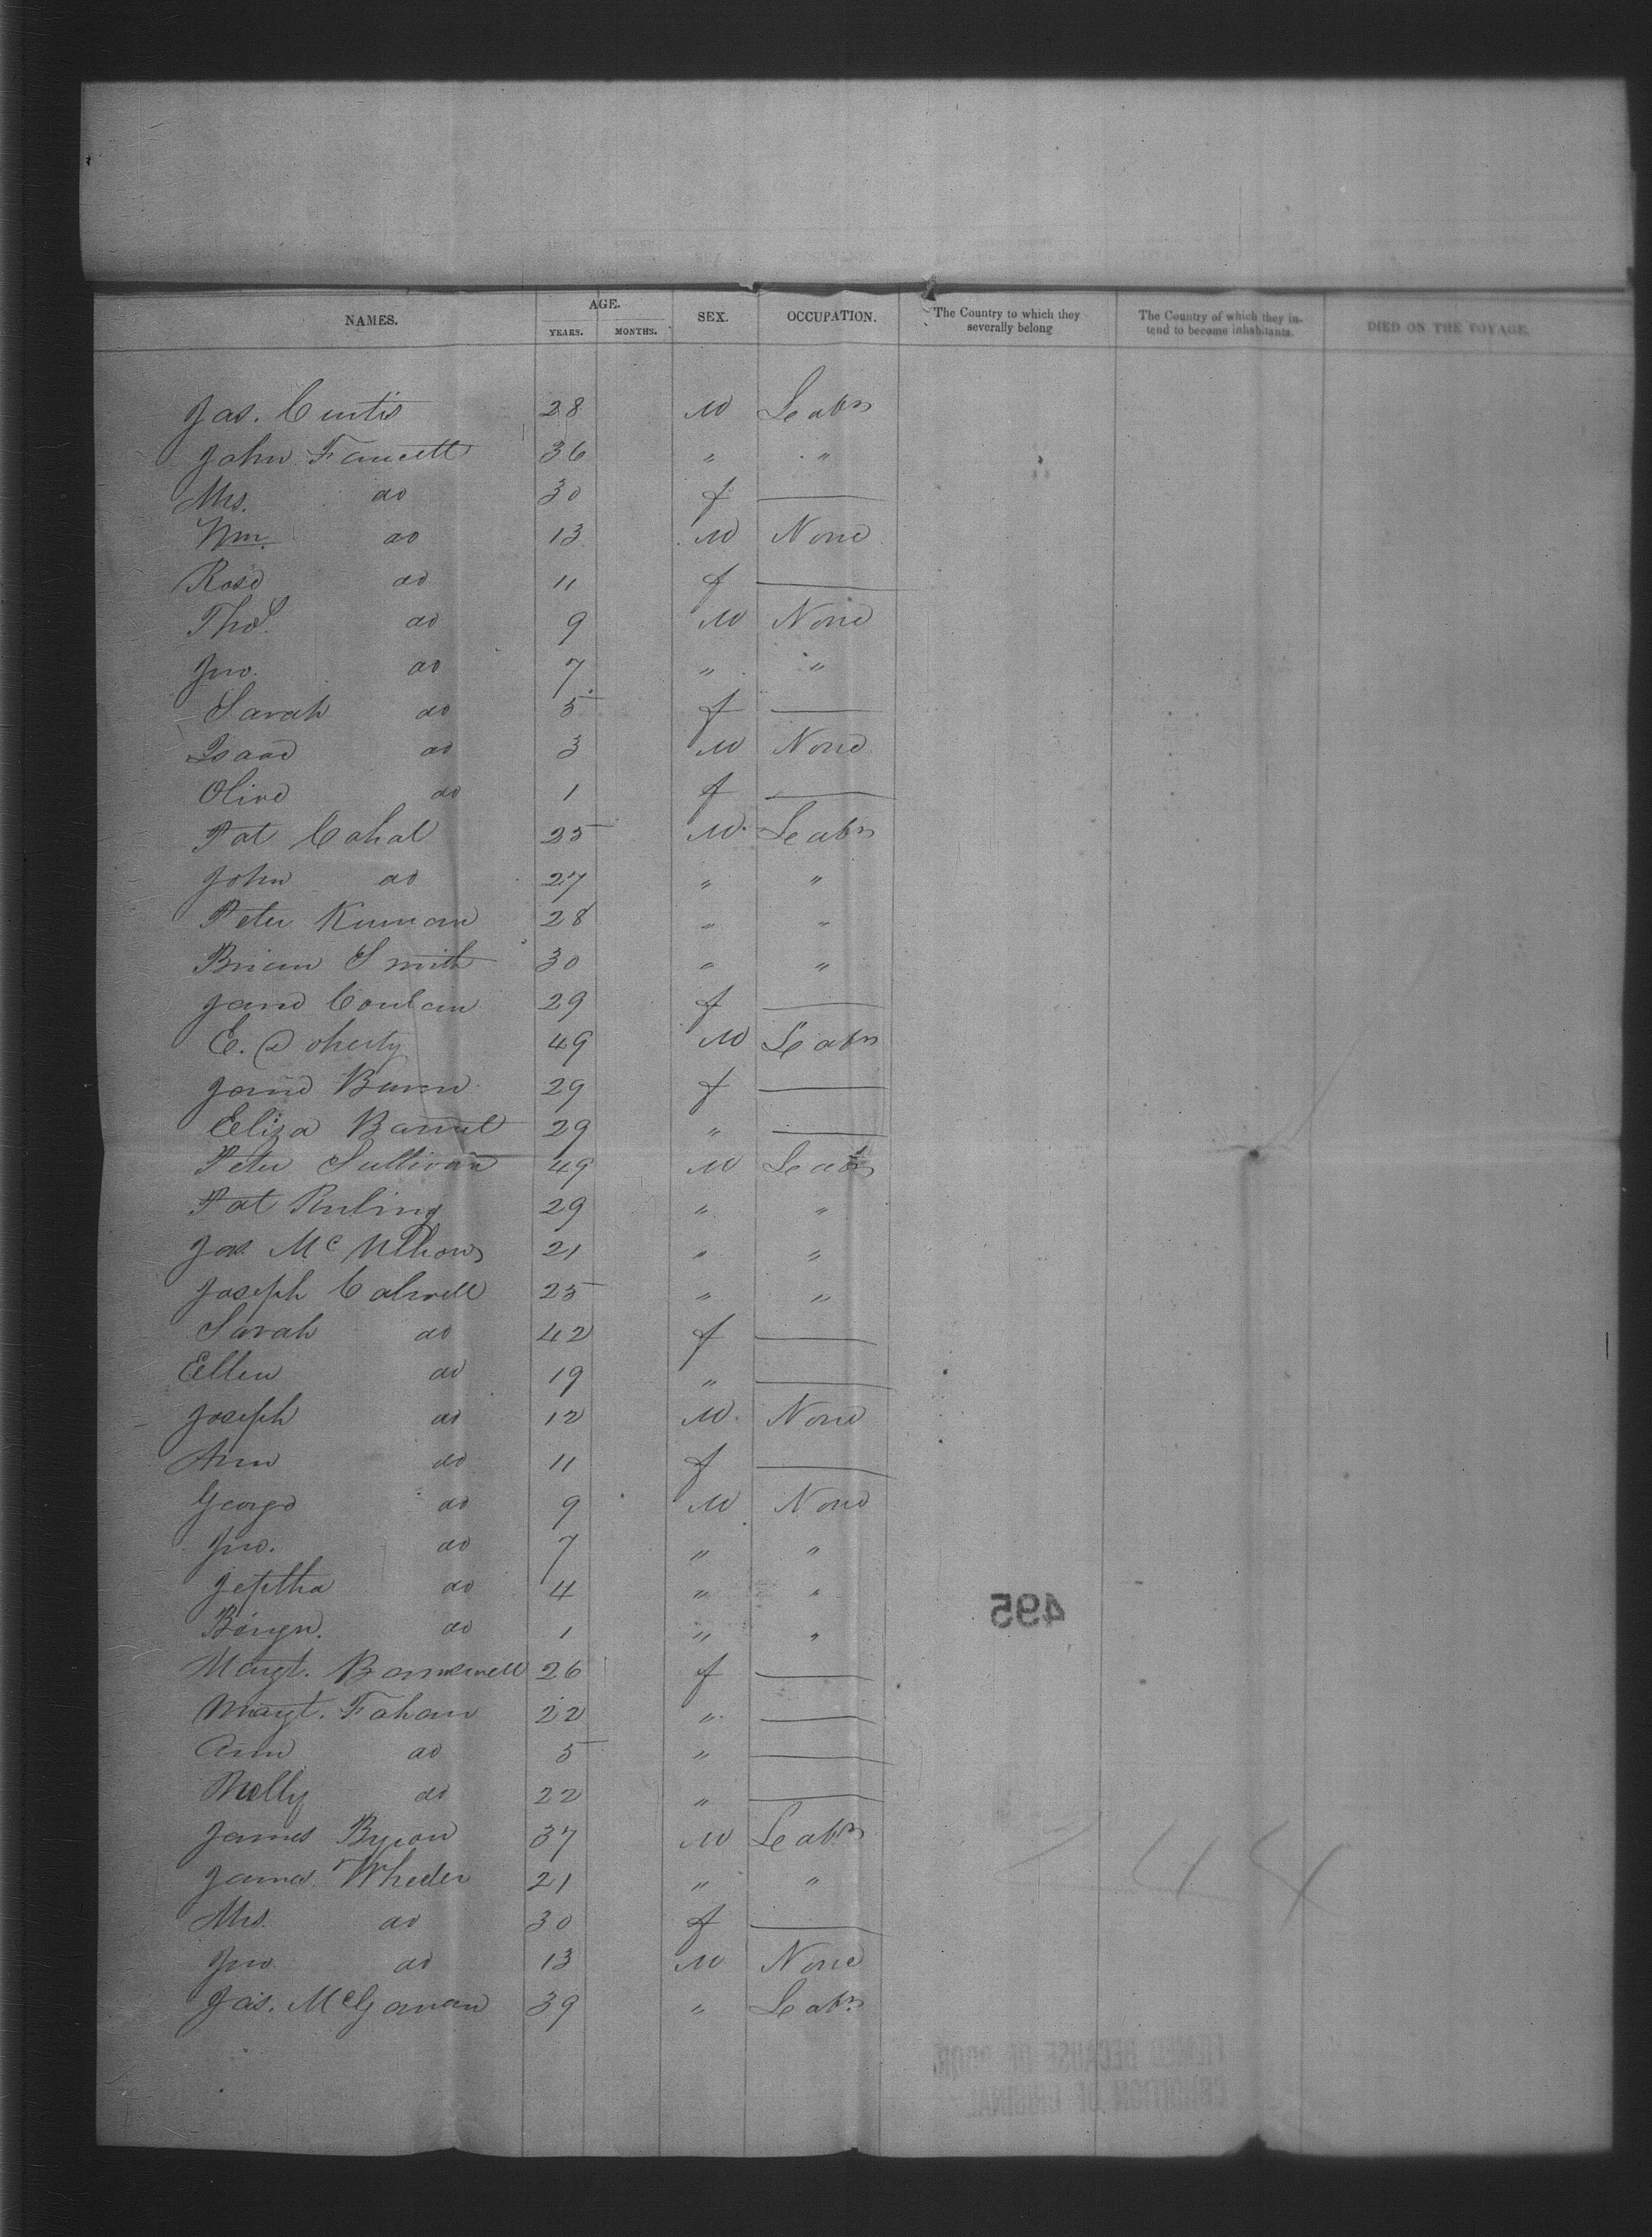 NAMES. AGE. YEARS. MONTHS. SEX. OCCUPATION. The Country to which they severally belong The Country of which they intend to become inhabitants. DIED ON THE VOYAGE.
Jas. Curtis 28 M Labr
John Fawcett 36 " "
Mrs. do 30 f
Wm. do 13 M None
Rose do 11 f
Thos. do 9 M None
Jno. do 7 " "
Sarah do 5 f
Isaac do 3 M None
Olive do 1 f
Pat Cahal 25 M Labr
John do 27 " "
Peter 28 " "
Brian Smith 30 " "
Jane 29 f
E. Doherty 49 M Labr
Jane 29 f
Eliza 29 "
Peter Sullivan 49 M Labr
Pat 29 " "
Jas Mc 21 " "
Joseph Calwell 25 " "
Sarah do 42 f
Ellen do 19 "
Joseph do 12 M None
Ann do 11 f
George do 9 M None
Jno. do 7 " "
Jeptha do 4 " "
Benjn. do 1 " "
Margt. Barnewell 26 f
Margt. Fahan 22 "
Ann do 5 "
Molly do 22 "
James Byron 37 M Labr
James Wheeler 21 " "
Mrs. do 30 f
Jno do 13 M None
Jas. McGowan 39 " Labr
495
244